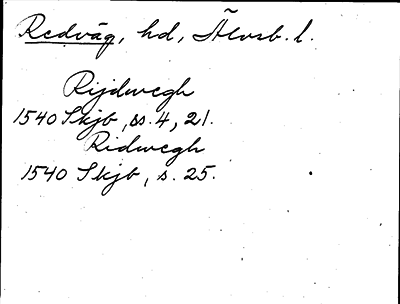 Redväg, hd, Älvsb. l.
Rijdwegh
1540 Skjb, ss. 4, 21.
Ridwegh
1540 Skjb, s. 25.